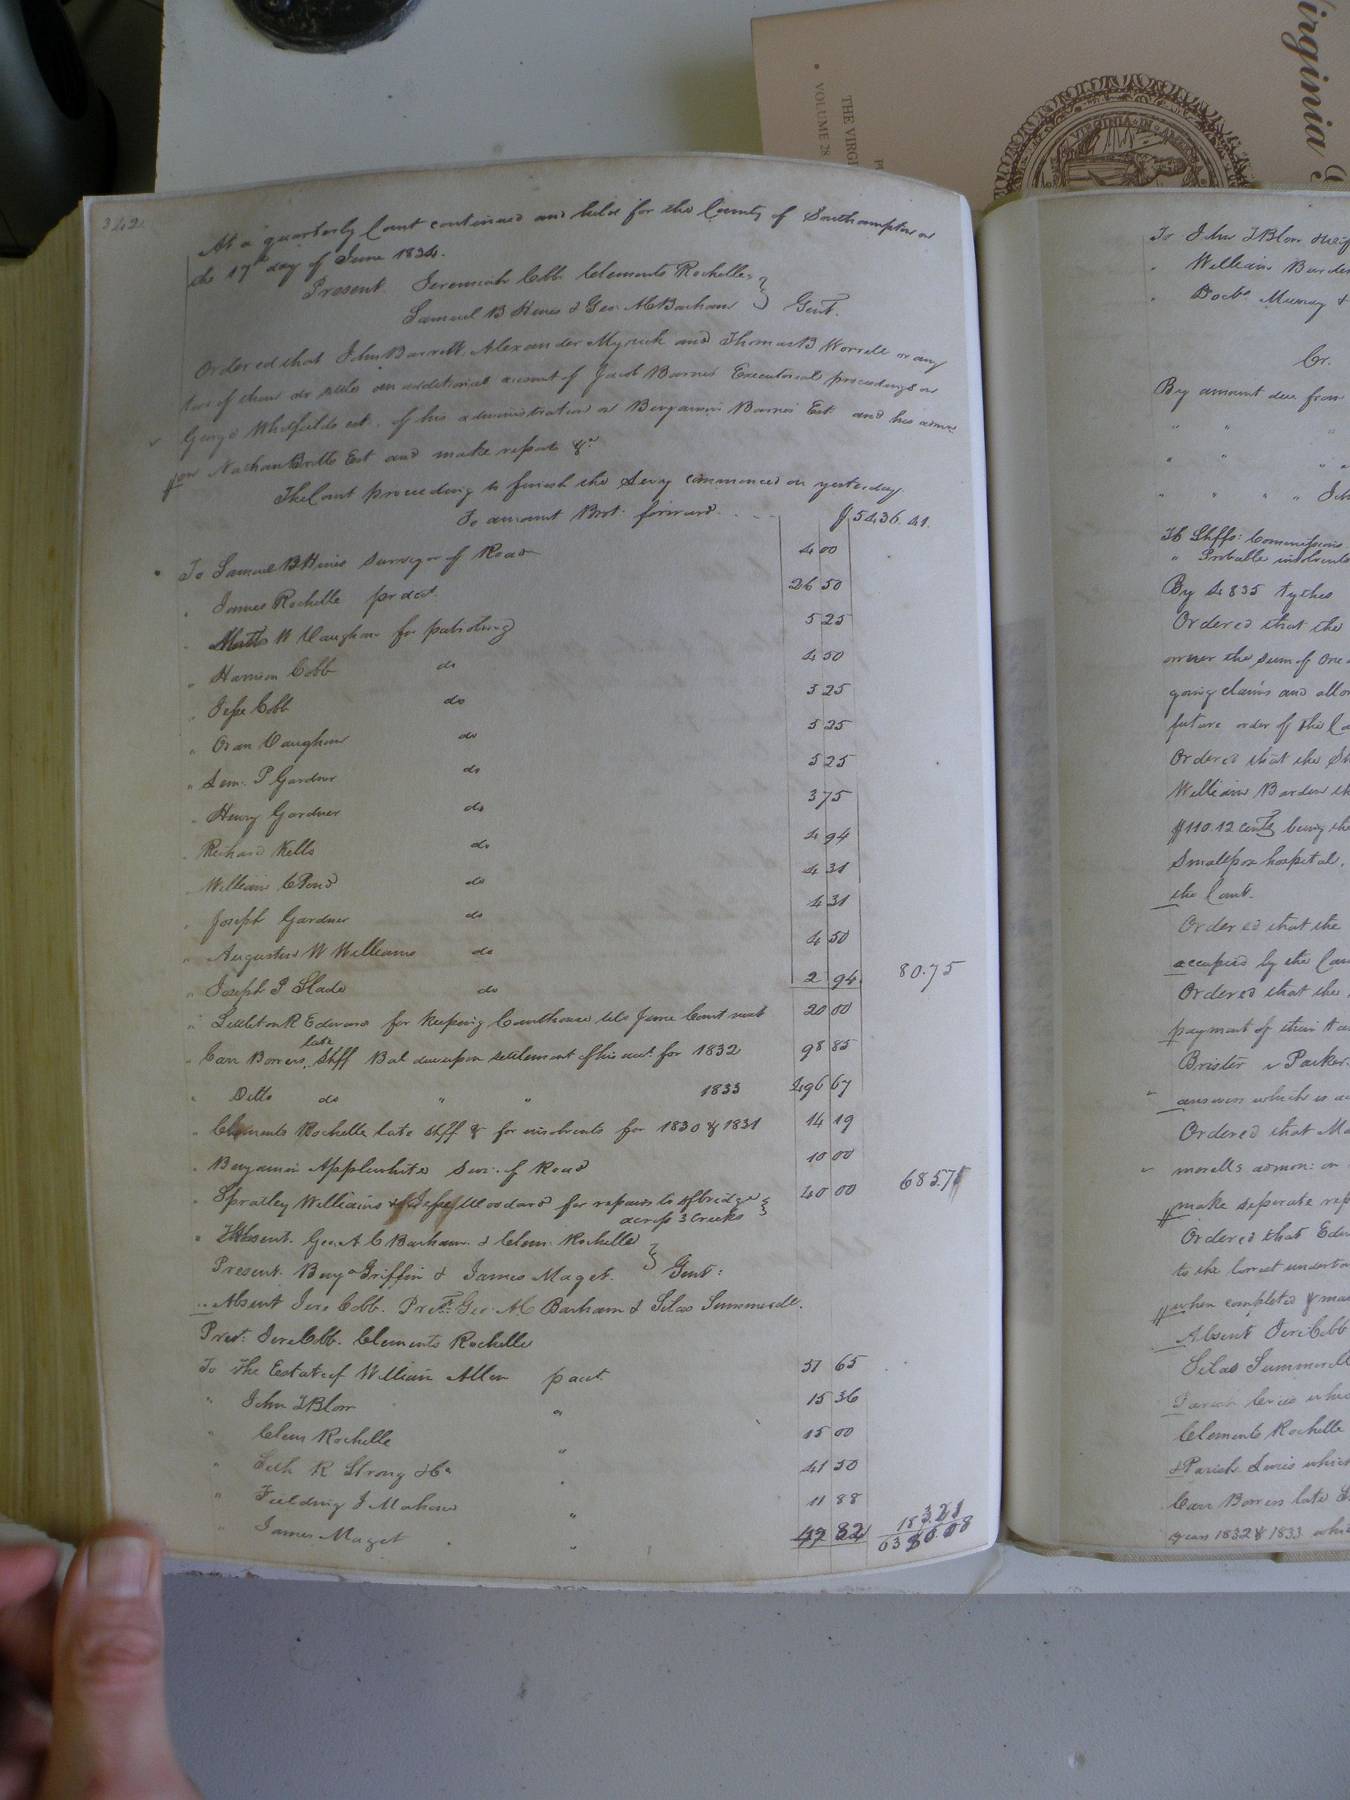 Virginia
THE VIRGI
VOLUME 28
VIRGINIA IN
342
At a quarterly Court continued and held for the County of Southampton on
the 17th day of June 1834.
Present. Jeremiah Cobb Clements Rochelle,
Samuel B Hines & Geo. A C Barham } Gent.
Ordered that John Barrett, Alexander Myrick and Thomas B Worrell or any
two of them do settle an additional account of Jacob Barnes Executorial proceedings on
George Whitfields est. of his administration on Benjamin Barnes Est. and his admn.
on Nathan Britts Est and make report &c
The Court proceeding to finish the Levy commenced on yesterday.
To amount Brot. forward. $5436.41.
To Samuel B Hines Surveyor of Road 4 00
" James Rochelle pr acct. 26 50
" W Vaughan for patroling 5 25
" Harrison Cobb do 4 50
" Jesse Cobb do 5 25
" Oran Vaughan do 5 25
" Lem. P Gardner do 5 25
" Henry Gardner do 3 75
" Richard Kello do 4 94
" William C Pond do 4 31
" Joseph Gardner do 4 31
" Augustus W Williams do 4 50
" Joseph P Slade do 2 94 80.75
" Littleton R Edwards for keeping Courthouse till June Court next 20 00
" Carr Bowers, late Shff Bal due upon settlement of his acct. for 1832 98 85
" Ditto do " " 1833 496 67
" Clements Rochelle late Shff & for insolvents for 1830 & 1831 14 19
" Benjamin Applewhite Sur. of Road 10 00
" Spratley Williams & Jesse Woodard for repairs to of bridge 40 00 685.71
across 3 Creeks
" Absent. Geo. A C Barham. & Clem. Rochelle
Present. Benja Griffin & James Maget. } Gent:
Absent Jere Cobb. Prest. Geo. A C Barham & Silas Summerell.
Prest. Jere Cobb. Clements Rochelle
To The Estate of William Allen p acct. 51 65
" John T Blow " 15 36
" Clem Rochelle " 15 00
" R Strong & Co " 41 50
" Fielding J Mahone " 11 88
" James Maget " 47 82 183.21
To John T Blow
" William Barden
" Doctr Murray &
Cr.
By amount due from
" " "
Shffs: Commissions
" Probable insolvents
By 4835 tythes
Ordered that the
owner the sum of one
going claims and allow
future order of the Co
Ordered that the Sh
William Barden th
$110.12 cents being the
Smallpox hospital.
the Court.
Ordered that the
occupied by the Court
Ordered that the
payment of their
Brister v Parker
answers which is
Ordered that
admon: on
make separate rep
Ordered that Edw
to the lowest underta
when completed & ma
Absent Jere Cobb
Silas Summerell
Clements Rochelle
& Parish Levies which
Carr Bowers late S
years 1832 & 1833 whi